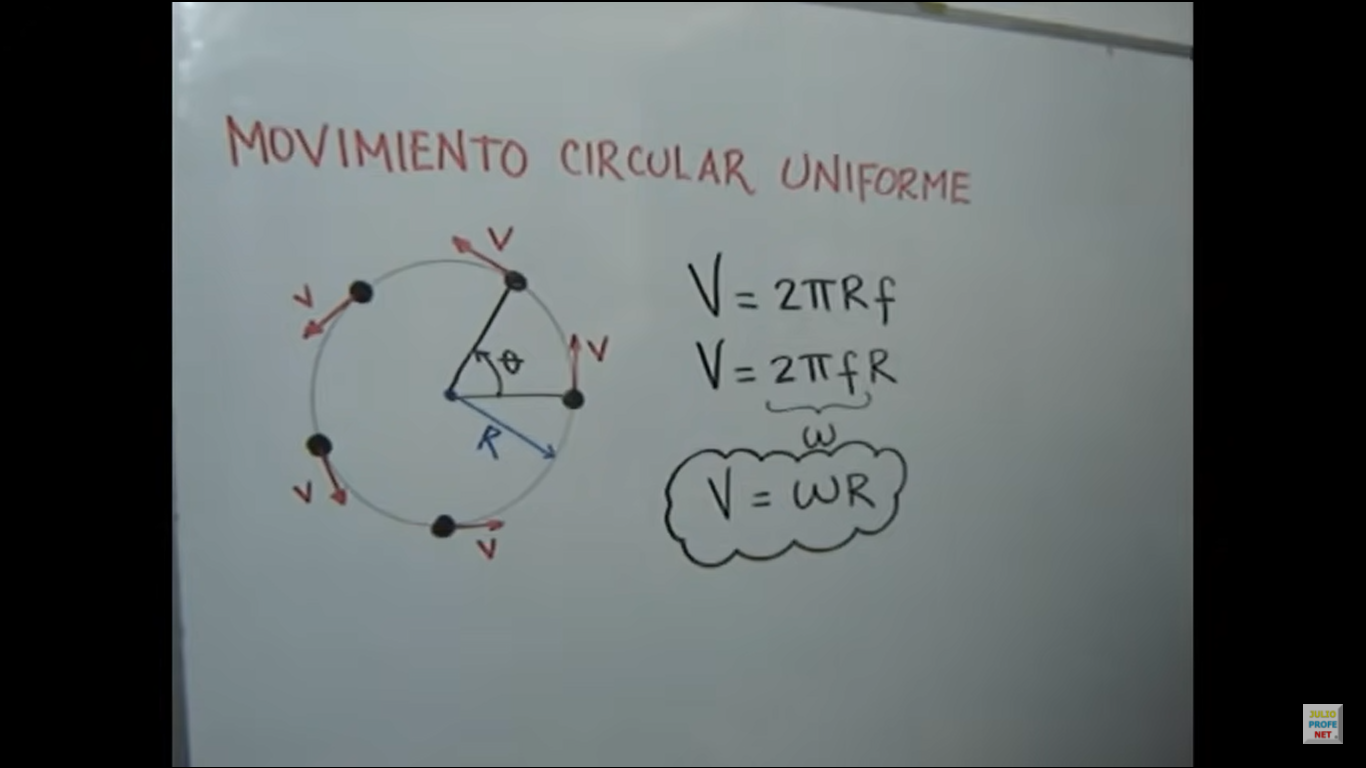 MOVIMIENTO CIRCULAR UNIFORME
V
V
V
θ
R
V
V
V = 2πRf
V = 2πfR
ω
V = ωR
JULIO
PROFE
NET